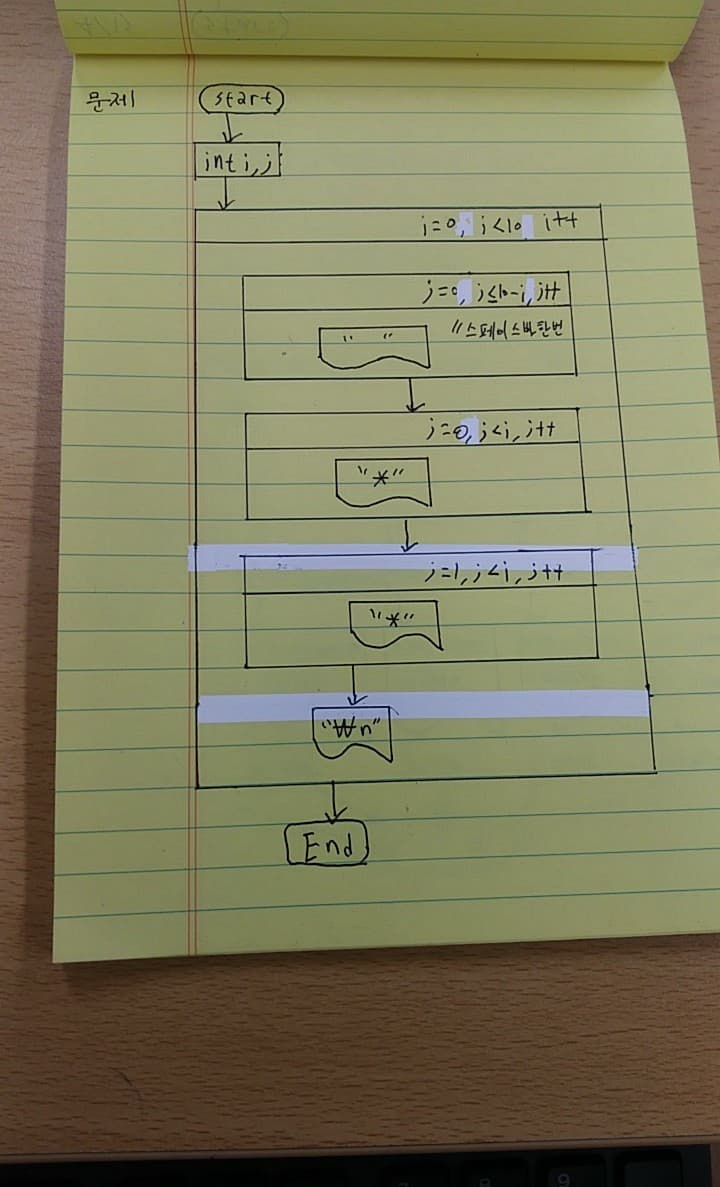 문제
start
int i, j
i=0, i<10, i++
j=0, j≤10-i, j++
" " //스페이스바한번
j=0, j<i, j++
"*"
j=1, j<i, j++
"*"
"₩n"
End